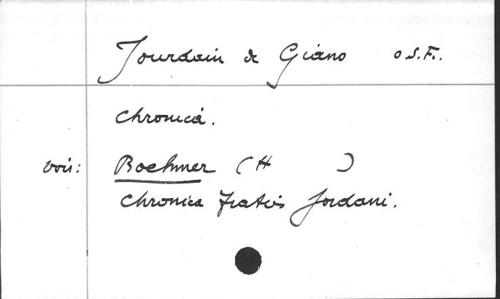 Jourdain de Giano O.S.Fr.
Chronica.
voir: Boehmer (H )
Chronica fratris Jordani.